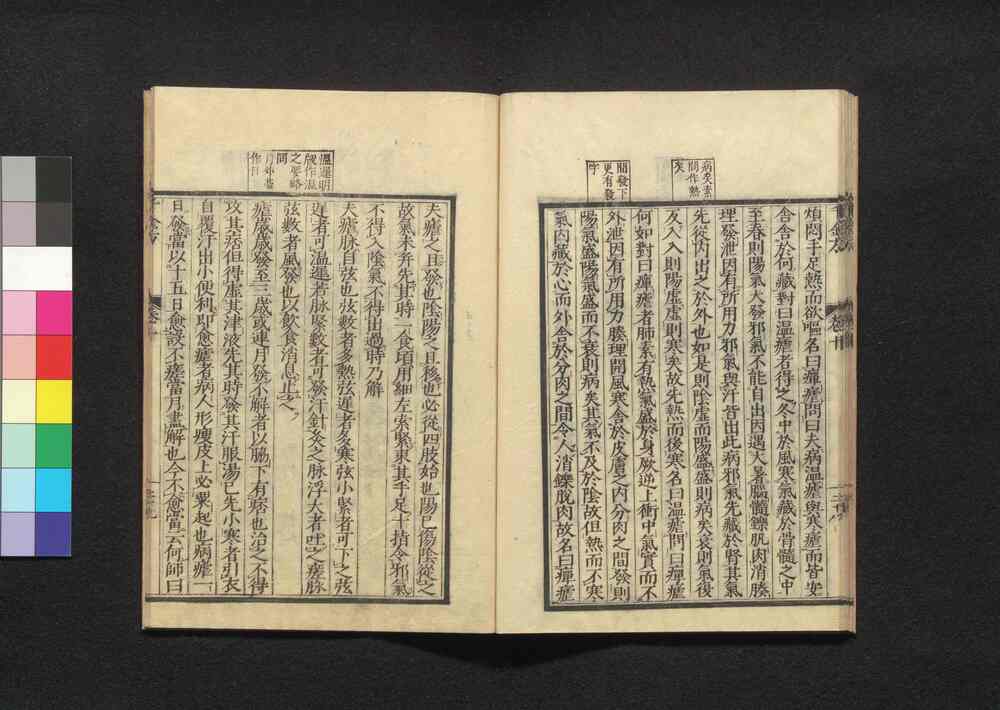 病矣素
問作熱
矣
間發下
更有發
字
煩悶手足熱而欲嘔名曰癉瘧問曰夫病溫瘧與寒瘧而皆安
舍舍於何藏對曰溫瘧者得之冬中於風寒氣藏於骨髓之中
至春則陽氣大發邪氣不能自出因遇大暑腦髓鑠肌肉消腠
理發泄因有所用力邪氣與汗皆出此病邪氣先藏於腎其氣
先從內出之於外也如是則陰虛而陽盛盛則病矣衰則氣復
反入入則陽虛虛則寒矣故先熱而後寒名曰溫瘧問曰癉瘧
何如對曰癉瘧者肺素有熱氣盛於身厥逆上衝中氣實而不
外泄因有所用力腠理開風寒舍於皮膚之內分肉之間發則
陽氣盛陽氣盛而不衰則病矣其氣不及於陰故但熱而不寒
氣內藏於心而外舍於分肉之間令人消鑠脫肉故名曰癉瘧
溫遲明
醫作溫
之要略
同
月外臺
作日
夫瘧之且發也陰陽之且移也必從四肢始也陽已傷陰從之
故氣未并先其時一食頃用細左索緊束其手足十指令邪氣
不得入陰氣不得出過時乃解
夫瘧脉自弦也弦數者多熱弦遲者多寒弦小緊者可下之弦
遲者可溫遲若脉緊數者可發汗針灸之脉浮大者吐之瘧脉
弦數者風發也以飲食消息止之
瘧歲歲發至三歲或連月發不解者以脇下有痞也治之不得
攻其痞但得虛其津液先其時發其汗服湯已先小寒者引衣
自覆汗出小便利即愈瘧者病人形瘦皮上必粟起也病瘧一
日發當以十五日愈設不瘥當月盡解也今不愈當云何師曰